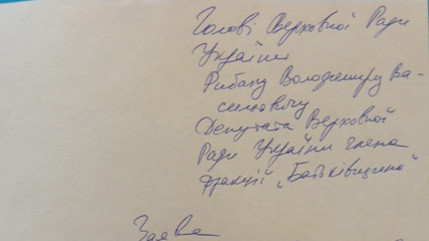 Голові Верховної Ради
України
Рибаку Володимиру Ва-
сильовичу
Депутата Верховної
Ради України члена
фракції „Батьківщина"
Заява